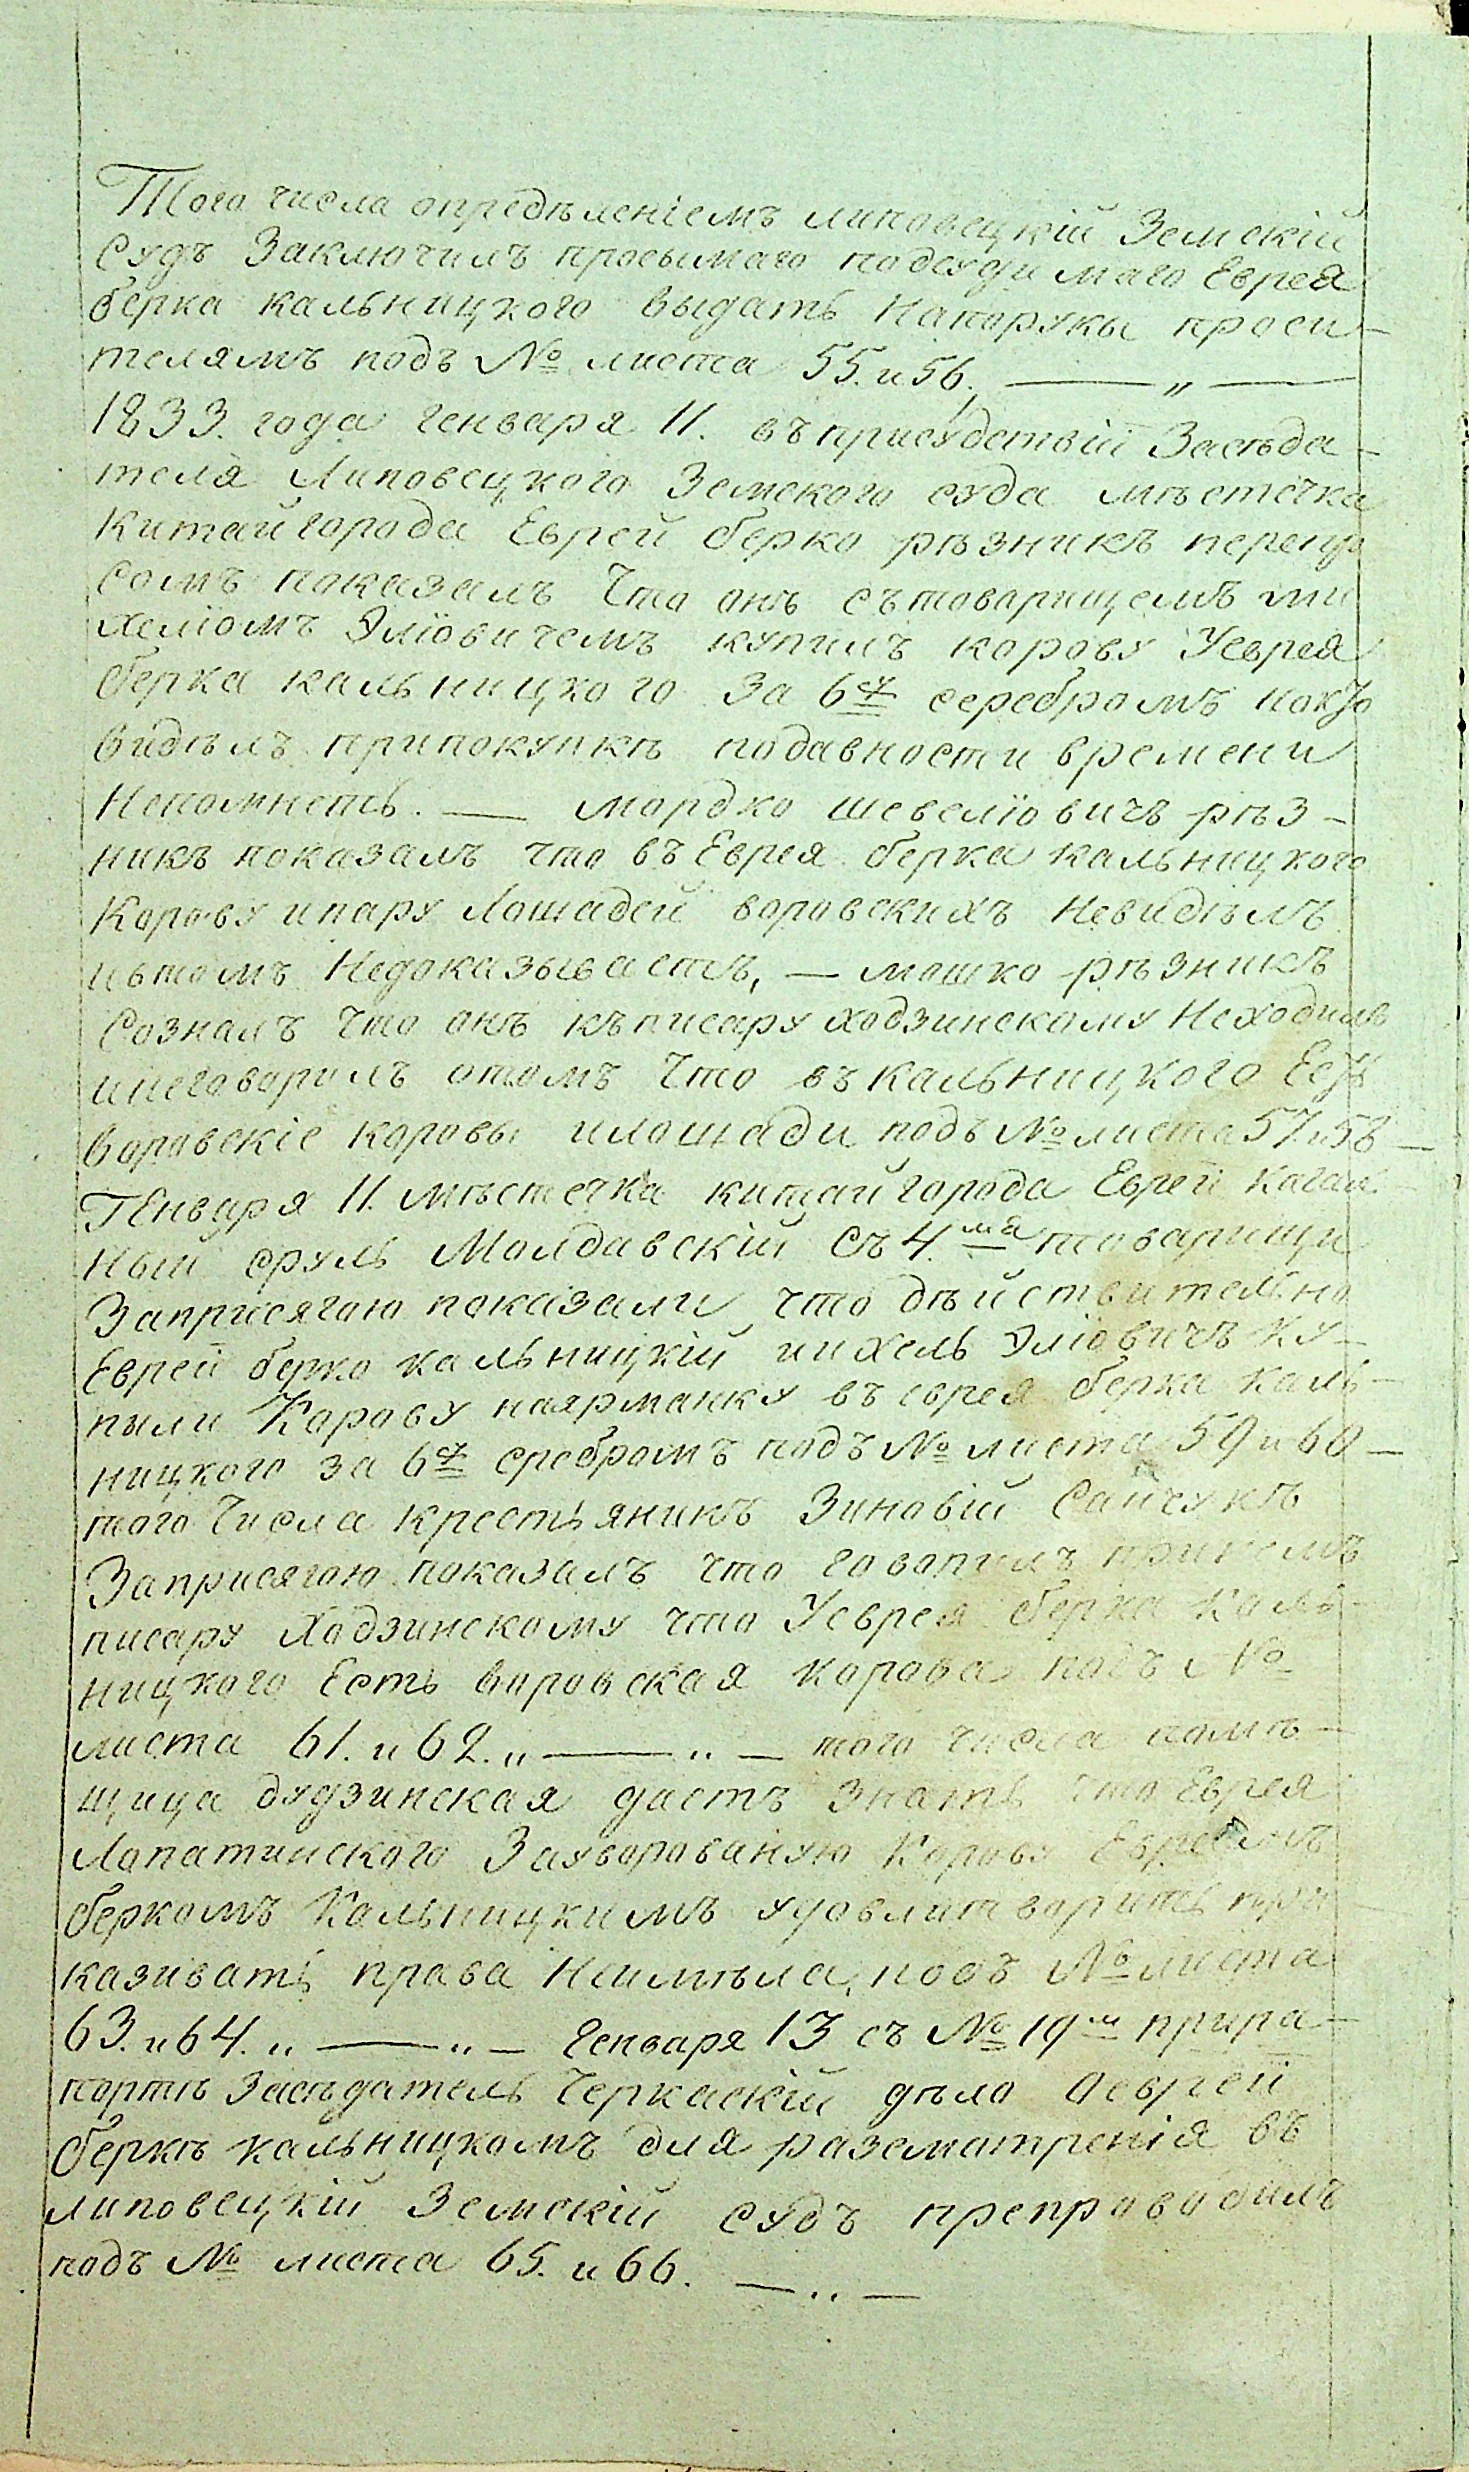 Того числа опредѣленіемъ липовецкій Земскій
Судъ Заключилъ просымаго подсудимаго Еврея
берка кальницкого выдать Напоруки проси-
телямъ подъ № листа 55. и 56. — „ —
1833. года генваря 11. въ присудствіи Засѣда-
теля Липовецкого Земского суда мѣстечка
Китайгорода Еврей берко рѣзникъ
сомъ показалъ Что онъ съ товарищемъ ми
хелiомъ Элiовичемъ купилъ корову Уеврея
берка кальницкого за 6 серебромъ
видѣлъ припокупкѣ подавности времени
Непомнетъ. — мордко шевелiовичъ рѣз-
никъ показалъ что въ Еврея берка кальницкого
Корову ипару лошадей воровскихъ Невидѣлъ
Недоказываетъ, — мошко рѣзникъ
Созналъ что онъ къ писару ходзинскому Неходилъ
инеговорилъ отомъ Что въ кальницкого
воровскіе коровы илошади подъ № листа 57. и 58 —
ГЕнваря 11. мѣстечка китайгорода Еврей Кагал-
ный сруль Молдавскій съ 4.ма товарищи
Заприсягою показали что дѣйствительно
Еврей берко кальницкій ихель Элiовичъ ку-
пыли Корову наярманку въ еврея берка каль-
ницкого за 6 сребромъ подъ № листа 59 и 60 —
того Числа крестьяникъ Зиновій Сайчукъ
Заприсягою показалъ что говорилъ
писару Ходзинскому что Уеврея берка Каль-
ницкого Есть воровская корова подъ №
листа 61. и 62. „ — „ — того числа помѣ-
щица дудзинская даетъ знать что Еврея
Лопатинского Зауворованую Корову Евреемъ
беркомъ Кальницкимъ удовлитворить при
казивать права Неимѣла, подъ № листа
63. и 64. „ — „ — Генваря 13 съ № 19м прира-
портѣ Засѣдатель Черкаскій дѣло оеврей
беркѣ кальницкомъ для разсмотренія въ
липовецкій Земскій судъ препроводилъ
подъ № листа 65. и 66. — „ —